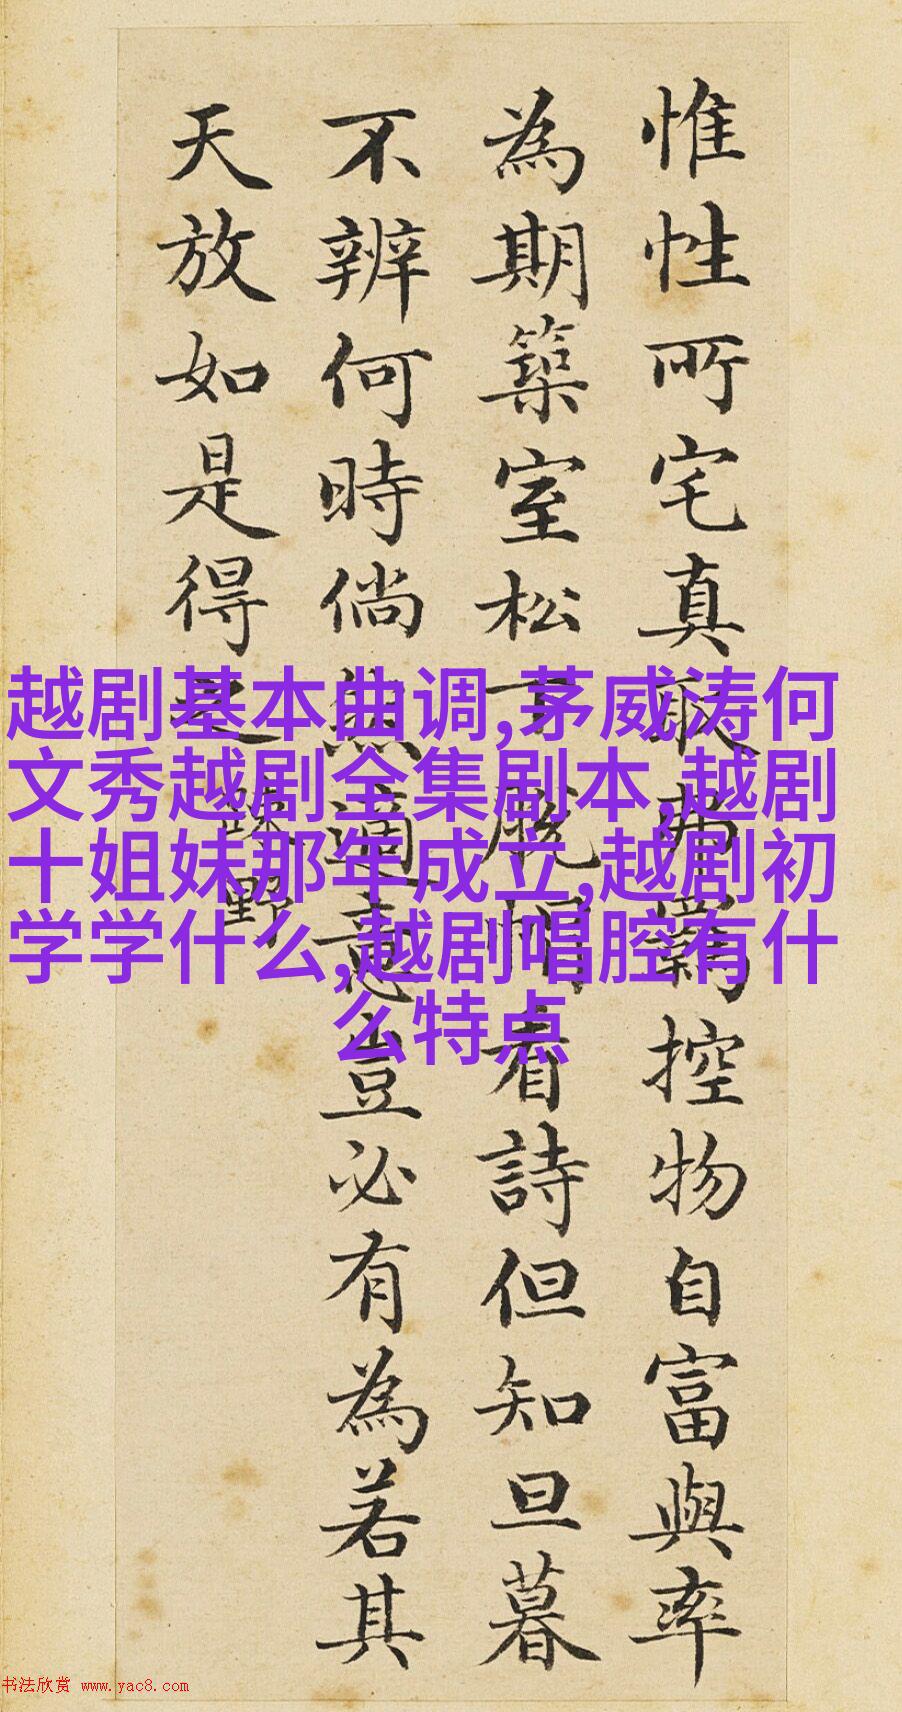 惟性所宅真取弗羁控物自富與率
為期築室松下脱帽看詩但知旦暮
不辨何時倘然適意豈必有為若其
天放如是得之
疎野
越剧基本曲调,茅威涛何
文秀越剧全集剧本,越剧
十姐妹那年成立,越剧初
学学什么,越剧唱腔有什
么特点
书法欣赏 www.yac8.com